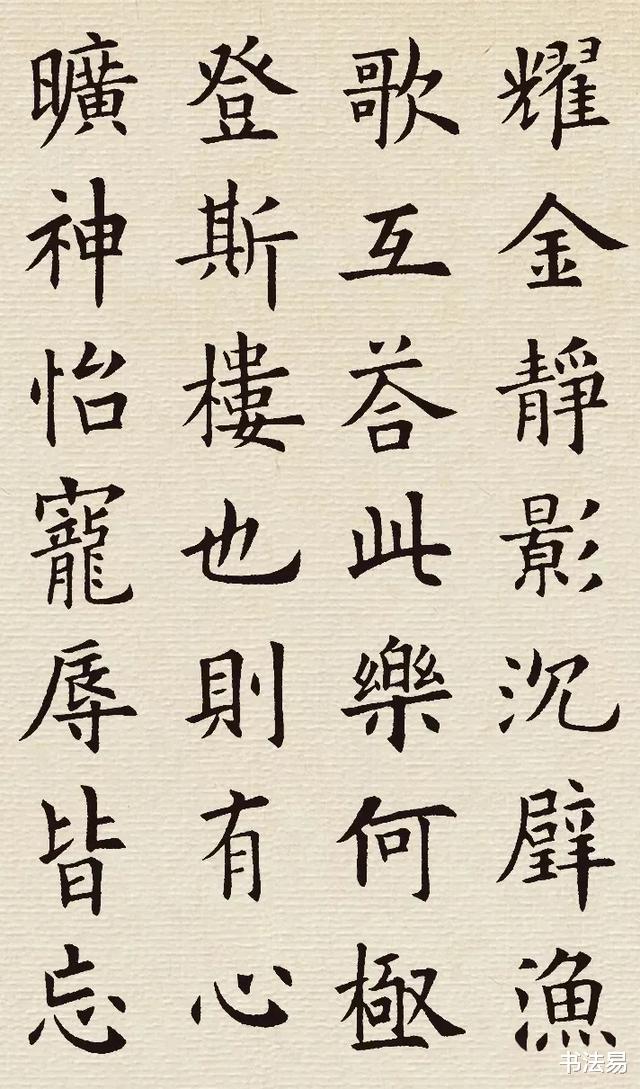 耀金靜影沉璧漁
歌互荅此樂何極
登斯樓也則有心
曠神怡寵辱皆忘
书法易